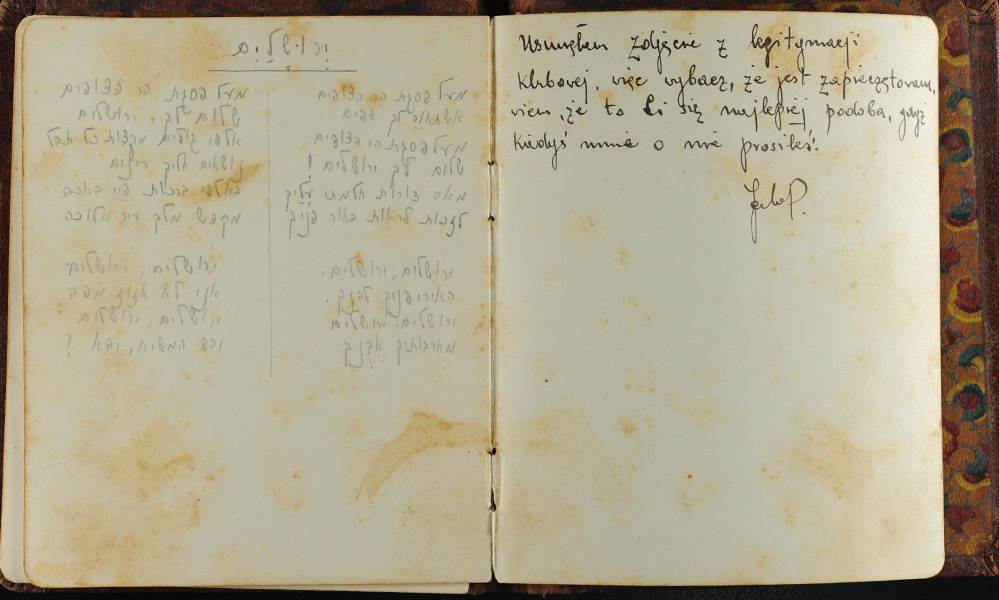 יְרוּשָלַיִם
מעל פסגת הר הצופים
אשתחוה לך אפים
מעל פסגת הר הצופים
שלום לך ירושלים !
מאה דורות חלמתי עליך
לזכות לראות באור פניך
ירושלים, ירושלים,
האירי פניך לבנך.
ירושלים, ירושלים
מחרבותיך אבנך
מעל פסגת הר הצופים
שלום לך, ירושלים
אלפי גולים מקצות כל תבל
נושאים אליך עינים
באלפי ברכות היי ברוכה
מקדש מלך עיר מלוכה
ירושלים, ירושלים
אני לא אזוז מפה
ירושלים, ירושלים
יבא המשיח, יבא !
zdjęcie z legitymacji
klubowej, więc wybacz, że jest zapieczętowane,
wiem, że to Ci się najlepiej podoba, gdyż
kiedyś mnie o nie prosiłaś!